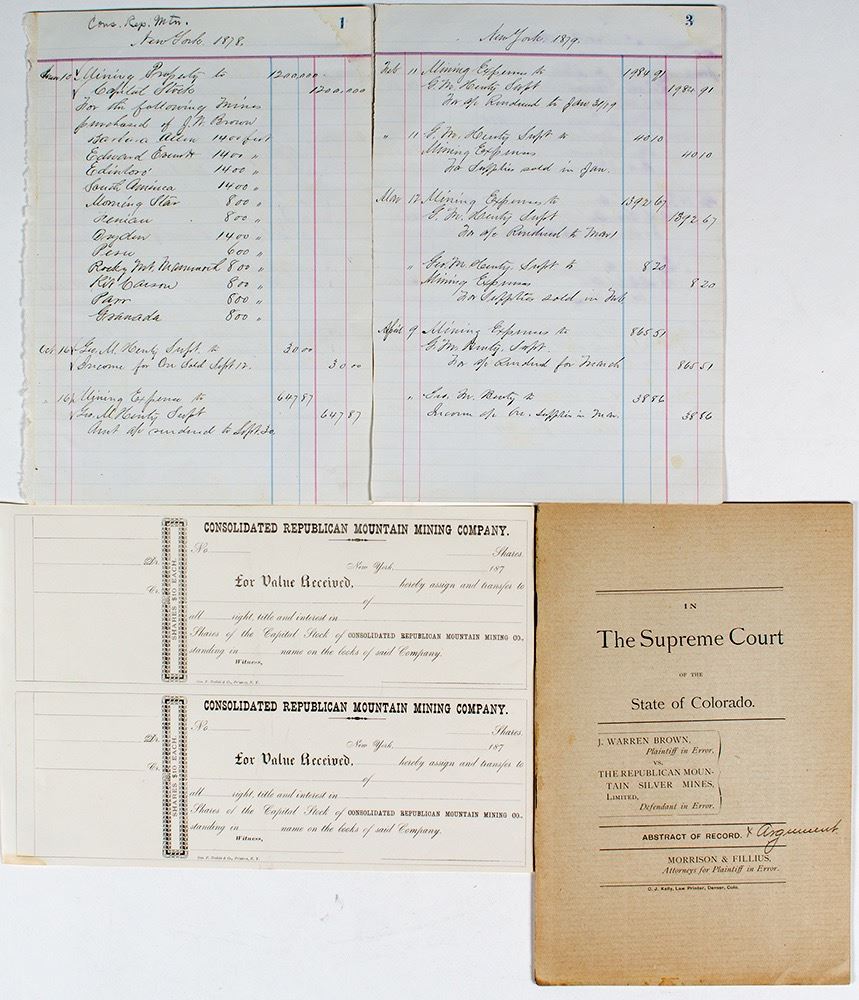 Cons. Rep. Mtn.
1
New York. 1878.
Mining Property to 1200,000
Capital Stock 1200,000
For the following Mines
purchased of J. W. Brown
Barbara Allen 1400 feet
Edward Everett 1400 "
Edinboro' 1400 "
South America 1400 "
Morning Star 800 "
Fenian 800 "
Dryden 1400 "
Peru 600 "
Rocky Mt. Mammoth 800 "
Kit Carson 800 "
Parr 600 "
Granada 800 "
Oct 16 Geo. M. Henty Supt. to 30 00
Income for Ore Sold Sept 12. 30 00
" 16 Mining Expense to 647 87
Geo. M. Henty Supt 647 87
Amt a/c rendered to Sept. 30
3
New York. 1879.
Feb 11 Mining Expenses to 1984 91
G. M. Henty Supt 1984 91
For a/c Rendered to Jan 31/79
" 11 G. M. Henty Supt to 40 10
Mining Expenses 40 10
For Supplies sold in Jan.
Mar 12 Mining Expenses to 1392 67
G. M. Henty Supt 1392 67
For a/c Rendered to Mar 1
" Geo. M. Henty. Supt to 8 20
Mining Expenses 8 20
For Supplies sold in Feb
April 9 Mining Expenses to 865 51
G. M. Henty Supt.
For a/c Rendered for March 865 51
" Geo. M. Henty to 38 86
Income a/c Ore. Supplies in Mar. 38 86
CONSOLIDATED REPUBLICAN MOUNTAIN MINING COMPANY.
No. Shares.
Dr. New York, 187
For Value Received, hereby assign and transfer to
Cr. of
all right, title and interest in
Shares of the Capital Stock of CONSOLIDATED REPUBLICAN MOUNTAIN MINING CO.,
standing in name on the books of said Company.
Witness,
SHARES $10 EACH.
CONSOLIDATED REPUBLICAN MOUNTAIN MINING COMPANY.
No. Shares.
Dr. New York, 187
For Value Received, hereby assign and transfer to
Cr. of
all right, title and interest in
Shares of the Capital Stock of CONSOLIDATED REPUBLICAN MOUNTAIN MINING CO.,
standing in name on the books of said Company.
Witness,
SHARES $10 EACH.
IN
The Supreme Court
OF THE
State of Colorado.
J. WARREN BROWN,
Plaintiff in Error,
vs.
THE REPUBLICAN MOUN-
TAIN SILVER MINES,
LIMITED,
Defendant in Error.
ABSTRACT OF RECORD. & Argument
MORRISON & FILLIUS,
Attorneys for Plaintiff in Error.
O. J. Kelly, Law Printer, Denver, Colo.